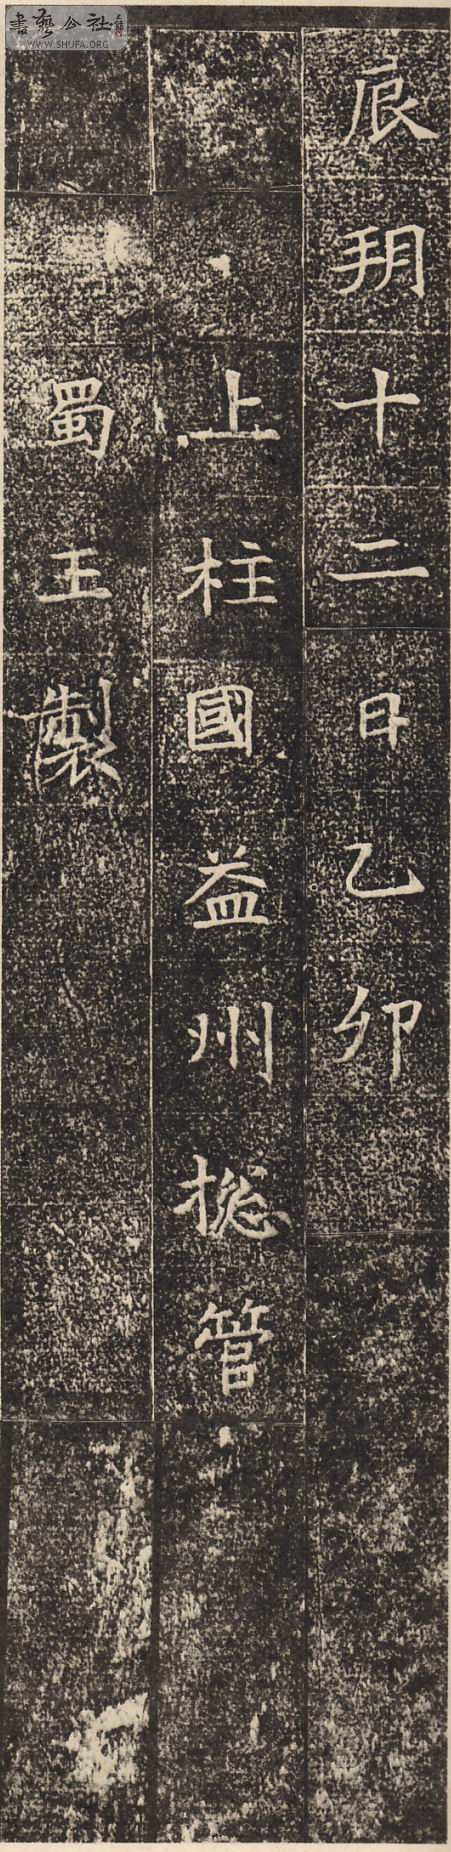 辰朔十二日乙卯
上柱國益州揔管
蜀王製
書藝公社
WWW.SHUFA.ORG